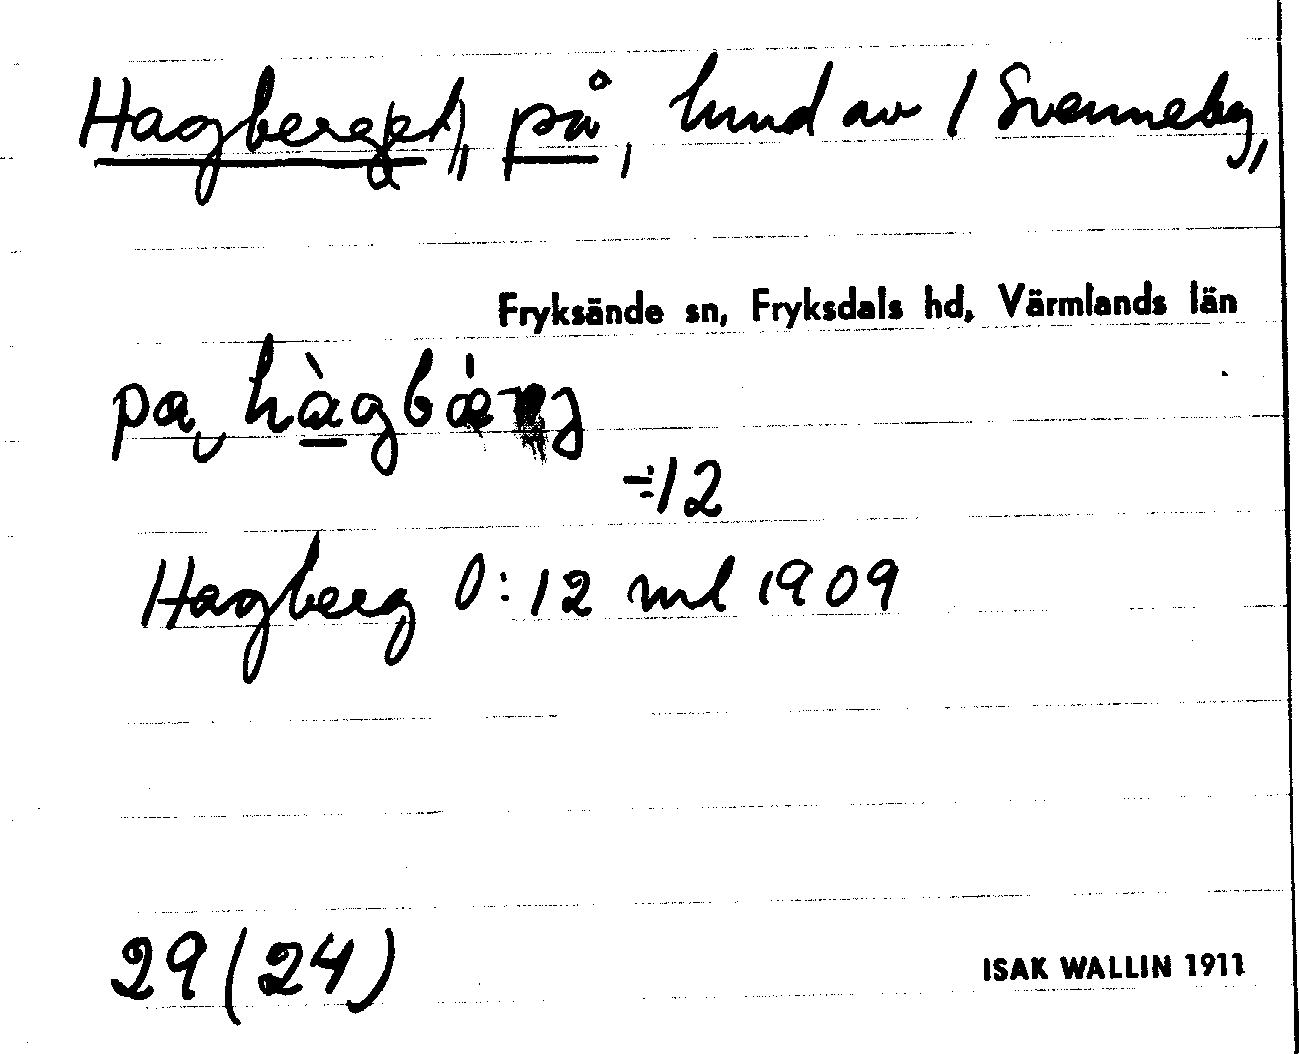 Hagberget, på, hmd av 1 Svenneby,
Fryksände sn, Fryksdals hd, Värmlands län
pa hàgbárg
÷12
Hagberg 0:12 ml 1909
29(24)
ISAK WALLIN 1911